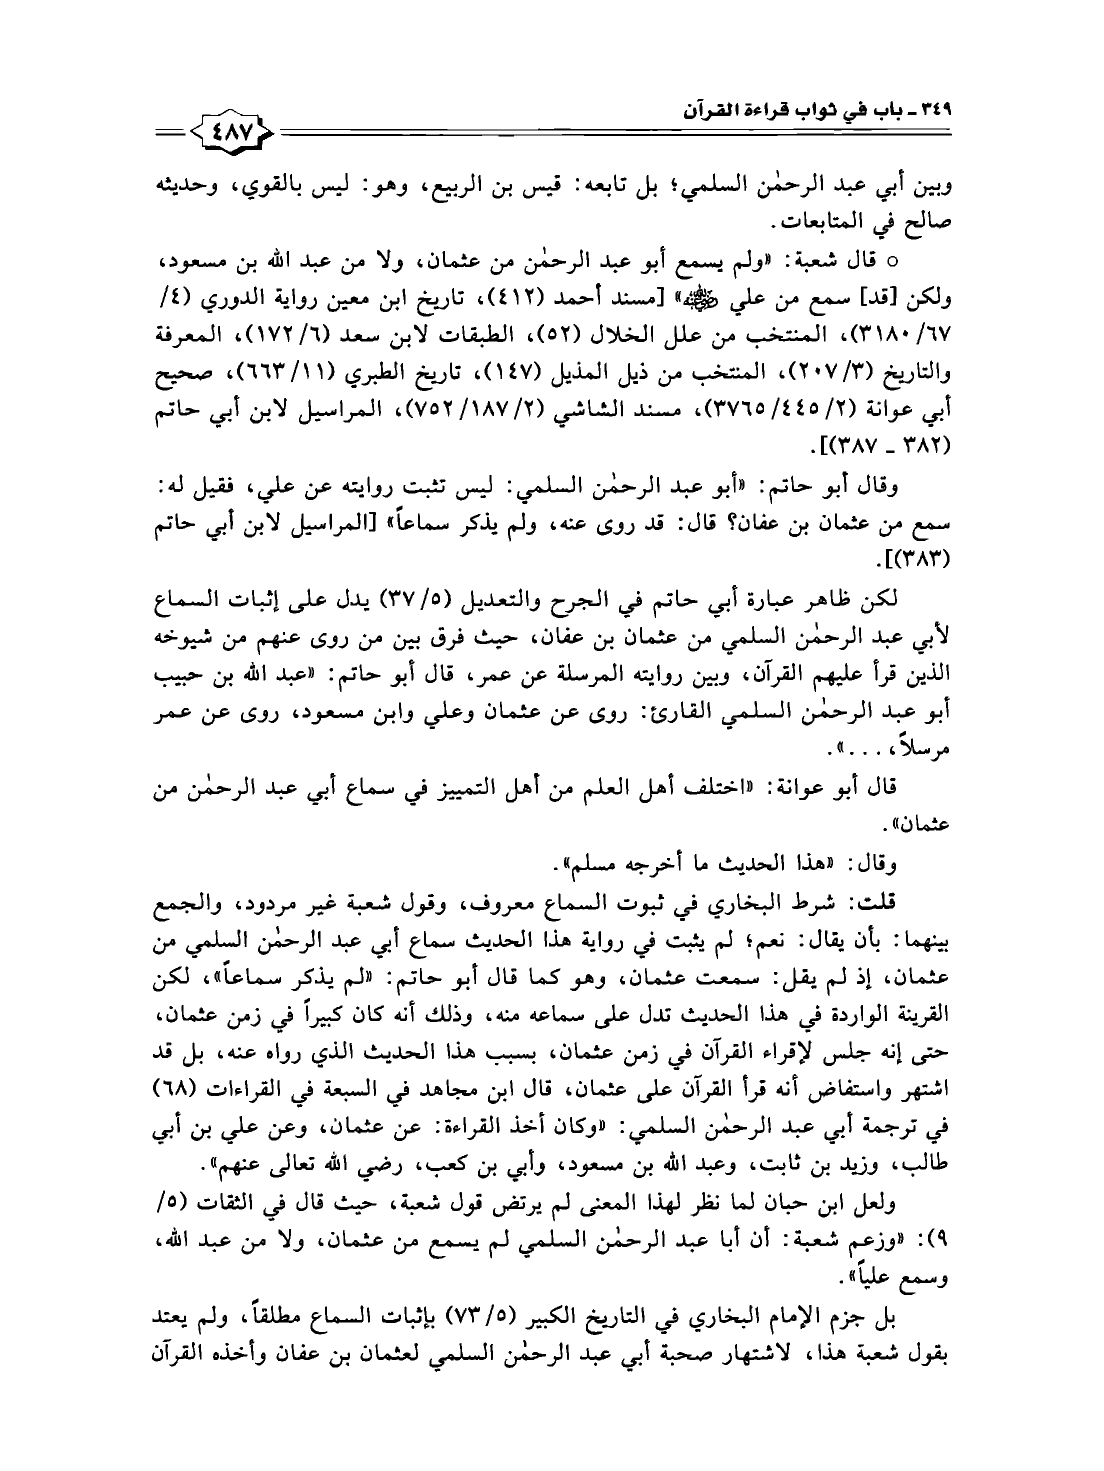 ٣٤٩ ـ باب في ثواب قراءة القرآن
٤٨٧
وبين أبي عبد الرحمٰن السلمي؛ بل تابعه: قيس بن الربيع، وهو: ليس بالقوي، وحديثه
صالح في المتابعات.
○ قال شعبة: «ولم يسمع أبو عبد الرحمٰن من عثمان، ولا من عبد الله بن مسعود،
ولكن [قد] سمع من علي رضي الله عنه» [مسند أحمد (٤١٢)، تاريخ ابن معين رواية الدوري (٤/
٣١٨٠/٦٧)، المنتخب من علل الخلال (٥٢)، الطبقات لابن سعد (١٧٢/٦)، المعرفة
والتاريخ (٢٠٧/٣)، المنتخب من ذيل المذيل (١٤٧)، تاريخ الطبري (٦٦٣/١١)، صحيح
أبي عوانة (٣٧٦٥/٤٤٥/٢)، مسند الشاشي (٧٥٢/١٨٧/٢)، المراسيل لابن أبي حاتم
(٣٨٢ ـ ٣٨٧)].
وقال أبو حاتم: «أبو عبد الرحمٰن السلمي: ليس تثبت روايته عن علي، فقيل له:
سمع من عثمان بن عفان؟ قال: قد روى عنه، ولم يذكر سماعاً» [المراسيل لابن أبي حاتم
(٣٨٣)].
لكن ظاهر عبارة أبي حاتم في الجرح والتعديل (٣٧/٥) يدل على إثبات السماع
لأبي عبد الرحمٰن السلمي من عثمان بن عفان، حيث فرق بين من روى عنهم من شيوخه
الذين قرأ عليهم القرآن، وبين روايته المرسلة عن عمر، قال أبو حاتم: «عبد الله بن حبيب
أبو عبد الرحمٰن السلمي القارئ: روى عن عثمان وعلي وابن مسعود، روى عن عمر
مرسلاً، ...».
قال أبو عوانة: «اختلف أهل العلم من أهل التمييز في سماع أبي عبد الرحمٰن من
عثمان».
وقال: «هذا الحديث ما أخرجه مسلم».
قلت: شرط البخاري في ثبوت السماع معروف، وقول شعبة غير مردود، والجمع
بينهما: بأن يقال: نعم؛ لم يثبت في رواية هذا الحديث سماع أبي عبد الرحمٰن السلمي من
عثمان، إذ لم يقل: سمعت عثمان، وهو كما قال أبو حاتم: «لم يذكر سماعاً»، لكن
القرينة الواردة في هذا الحديث تدل على سماعه منه، وذلك أنه كان كبيراً في زمن عثمان،
حتى إنه جلس لإقراء القرآن في زمن عثمان، بسبب هذا الحديث الذي رواه عنه، بل قد
اشتهر واستفاض أنه قرأ القرآن على عثمان، قال ابن مجاهد في السبعة في القراءات (٦٨)
في ترجمة أبي عبد الرحمٰن السلمي: «وكان أخذ القراءة: عن عثمان، وعن علي بن أبي
طالب، وزيد بن ثابت، وعبد الله بن مسعود، وأبي بن كعب، رضي الله تعالى عنهم».
ولعل ابن حبان لما نظر لهذا المعنى لم يرتض قول شعبة، حيث قال في الثقات (٥/
٩): «وزعم شعبة: أن أبا عبد الرحمٰن السلمي لم يسمع من عثمان، ولا من عبد الله،
وسمع علياً».
بل جزم الإمام البخاري في التاريخ الكبير (٧٣/٥) بإثبات السماع مطلقاً، ولم يعتد
بقول شعبة هذا، لاشتهار صحبة أبي عبد الرحمٰن السلمي لعثمان بن عفان وأخذه القرآن